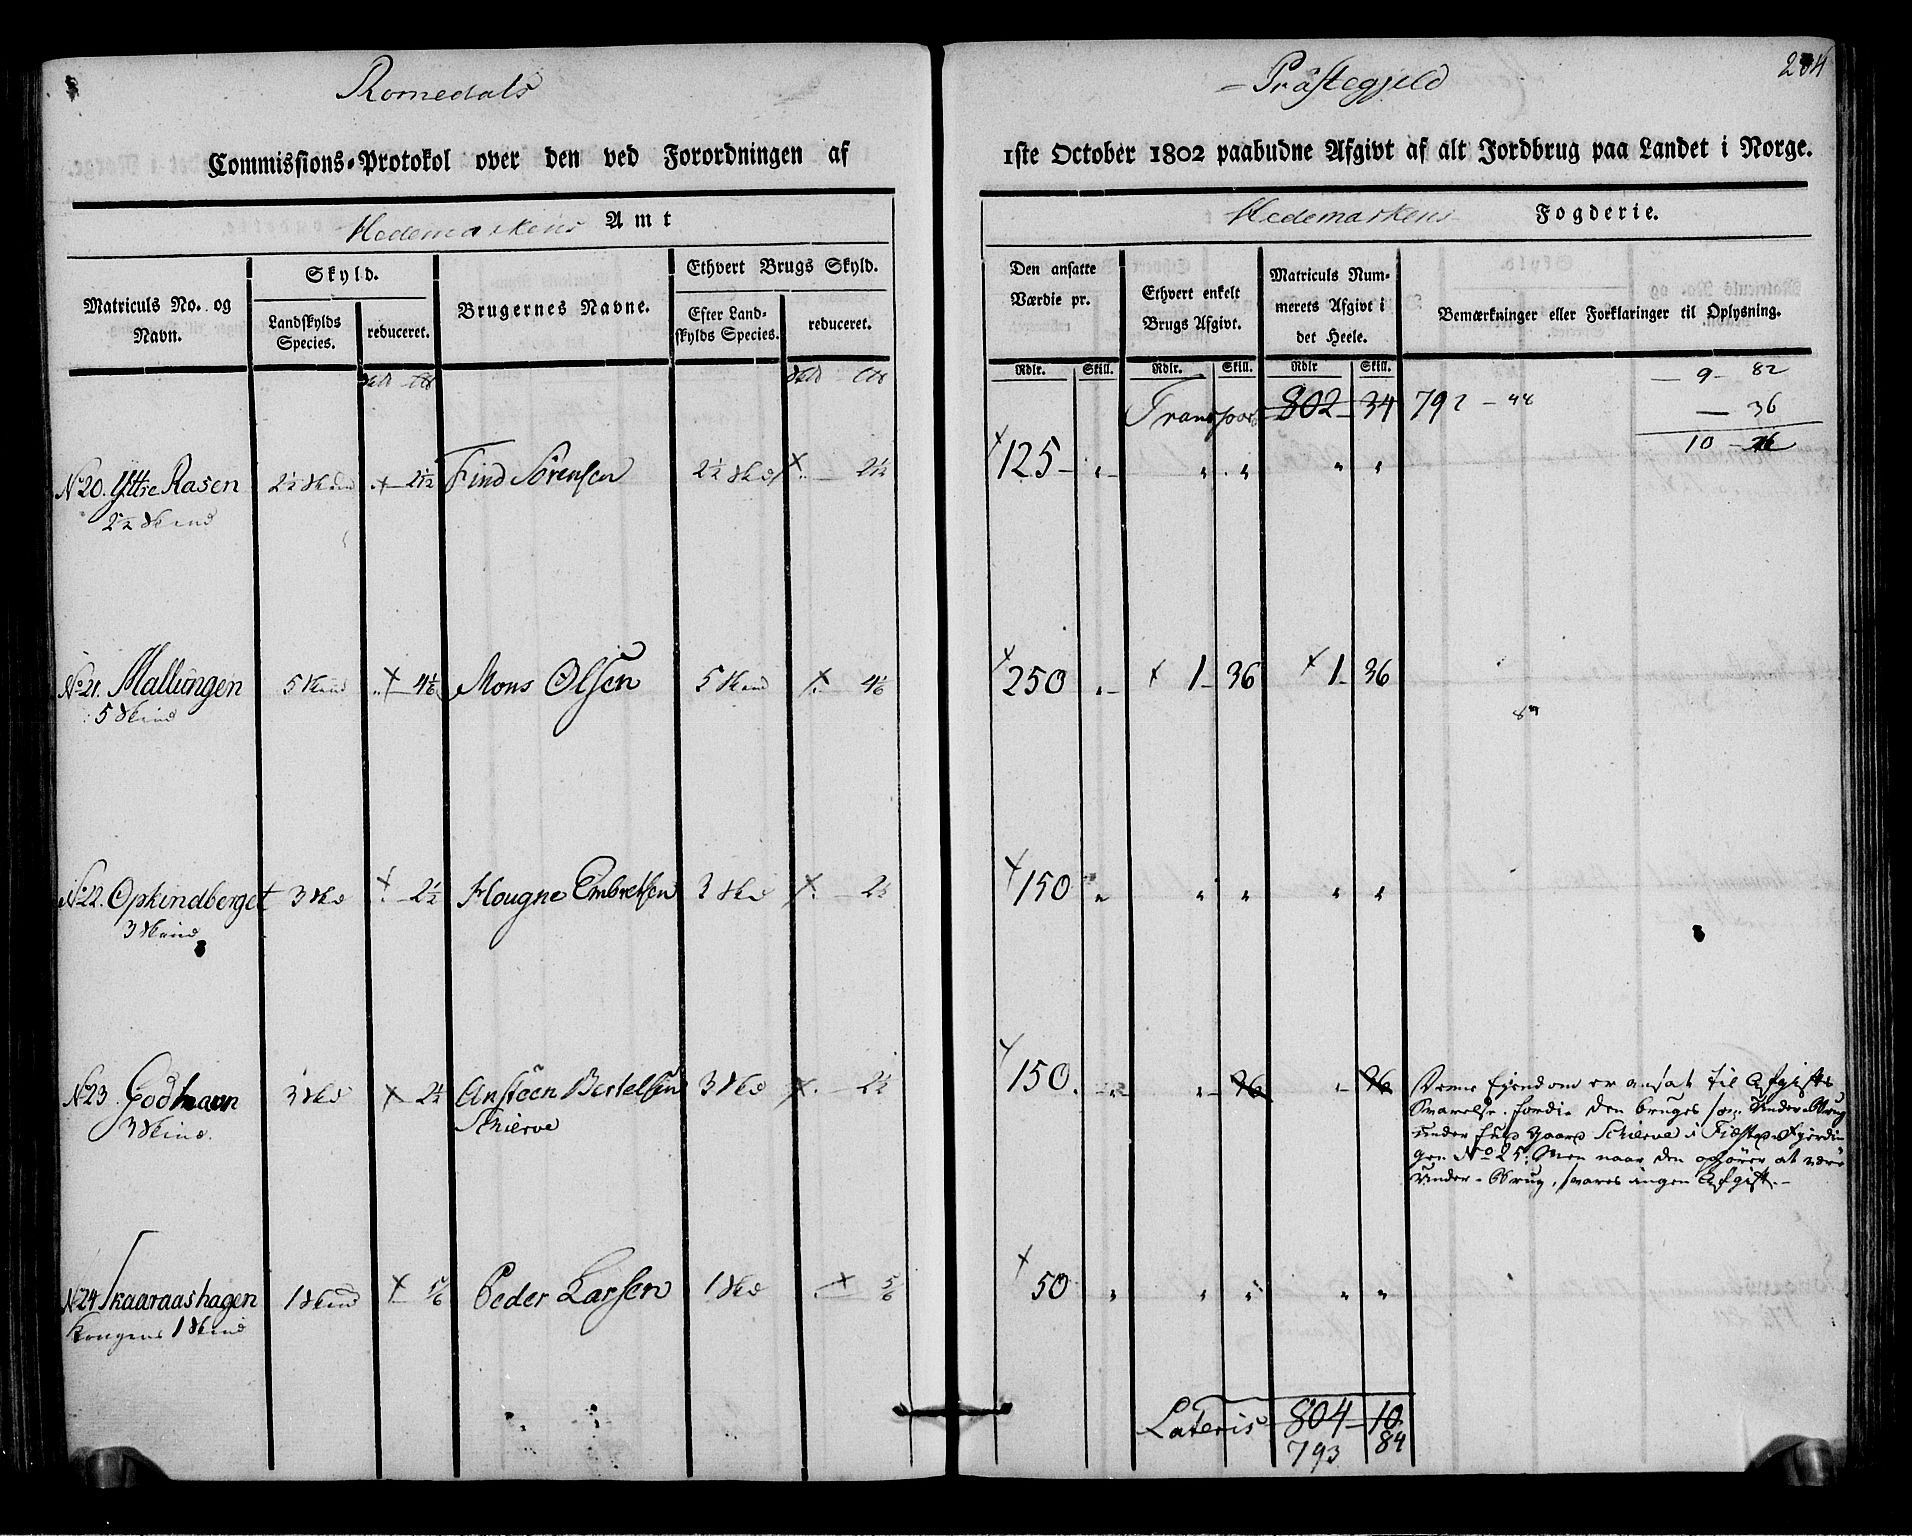 Romedals
Commissions-Protokol over den ved Forordningen af
Hedemarkens Amt
Matriculs No. og Navn.
Skyld.
Landskylds Species.
reduceret.
Brugernes Navne.
Ethvert Brugs Skyld.
Efter Landskylds Species.
reduceret.
No 20. Yttre Rasen 2½ Skind - 2 1/12 Find Sörensen 2½ Skd 2½
2½ Skind
No 21. Mallungen 5 Skind 4⅙ Mons Olsen 5 Skind 4⅙
5 Skind
No 22. Opkindberget 3 Skd 2½ Hougne Embretsen 3 Skd 2½
3 Skind
No 23 Godthaun 3 Skd 2½ Ansteen Bertelsen 3 Skd 2½
3 Skind. Schierve
No 24 Skaaraashagen 1 Skind ⅚ Peder Larsen 1 Skd ⅚
Kongens 1 Skind
Præstegjeld
204
1ste October 1802 paabudne Afgivt af alt Jordbrug paa Landet i Norge.
Hedemarkens Fogderie.
Den ansatte Værdie pr.
Ethvert enkelt Brugs Afgivt.
Matriculs Nummerets Afgivt i det Heele.
Bemærkninger eller Forklaringer til Oplysning.
Rdlr. Skill. Rdlr. Skill. Rdlr Skill.
9 - 82
Transport 802 - 34 792 - 44
- 36
10
125 - " " " " "
250 " 1 - 36 1 - 36
150 " " " " "
150. " " 36 " 36
Denne Eiendom er ansat til Afgifts
Svarelse, fordi den bruges som Under-Brug
under hans Gaard Schierve i Fierdin
gen No 25; Men naar den ophører at være
Under-Brug, svares ingen Afgift.-
50 " " " " "
Lateris 804 - 10
793 84